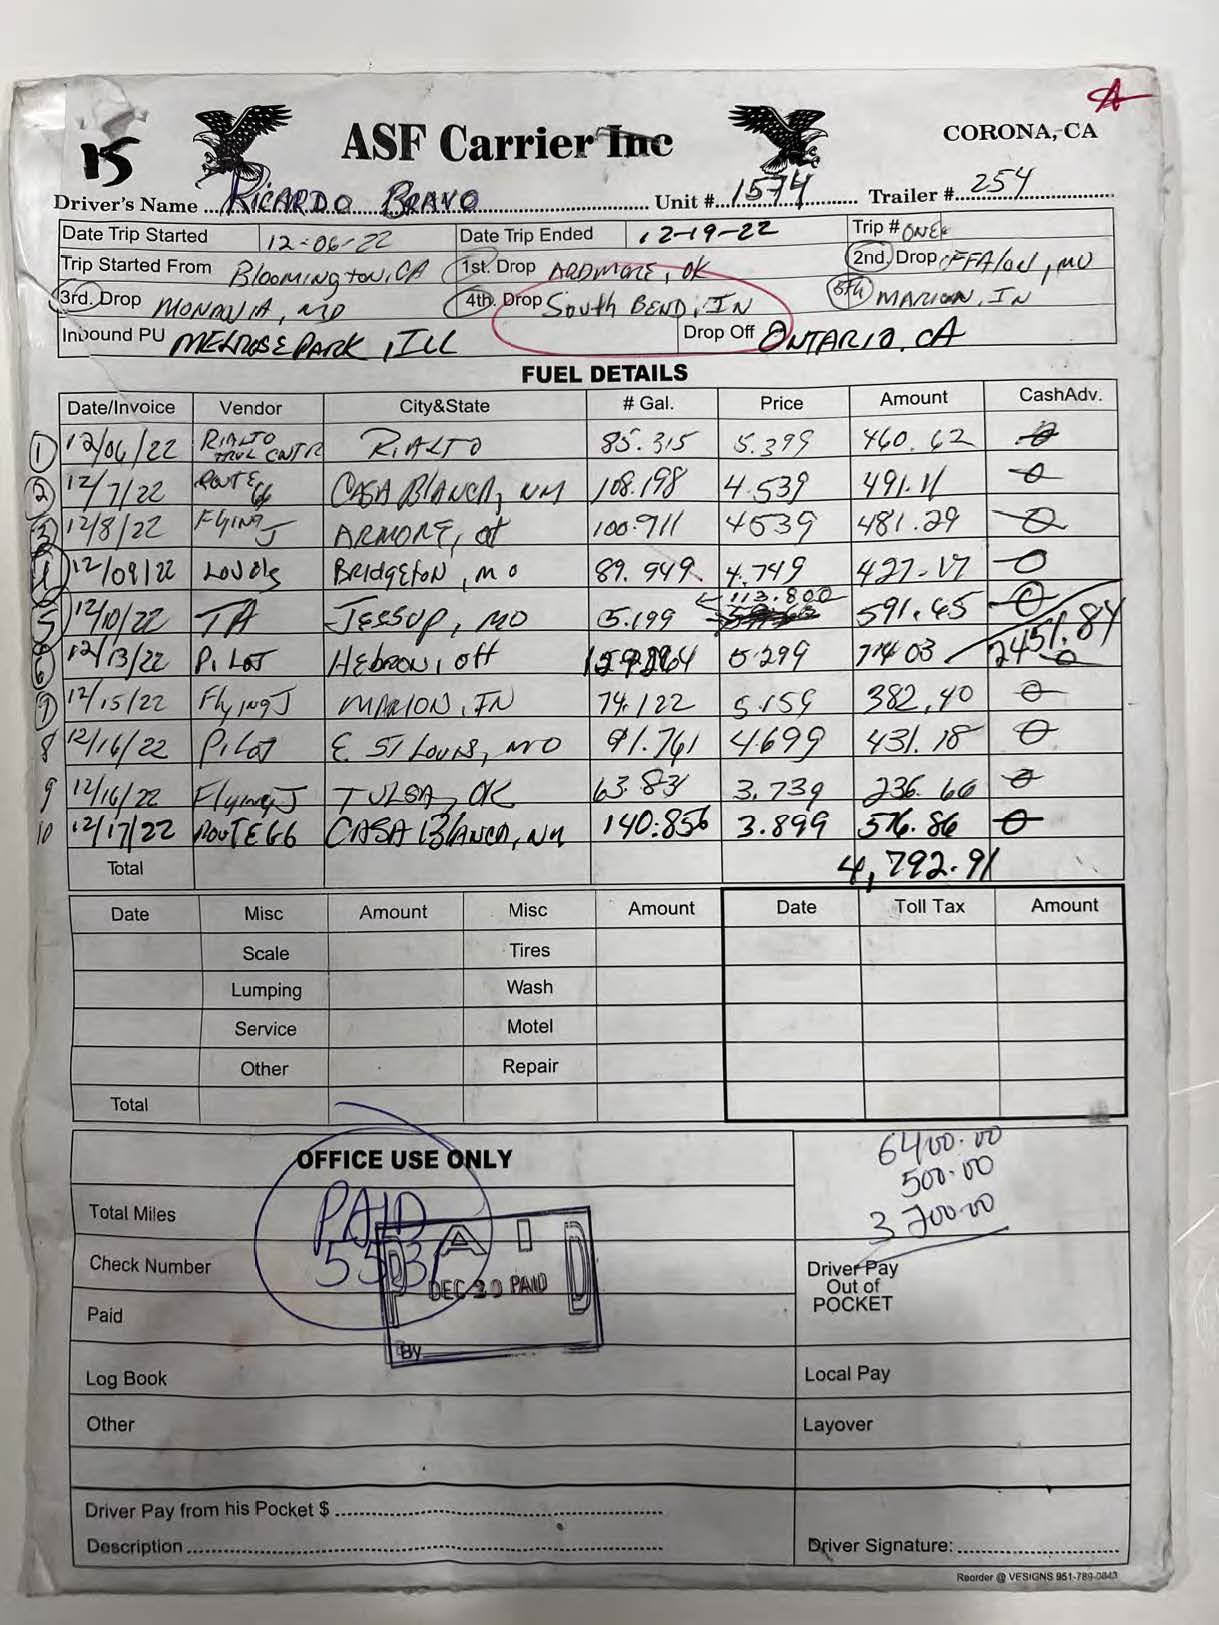 A
15
ASF Carrier Inc
CORONA, CA
Driver's Name RICARDO BRAVO Unit # 1574 Trailer # 254
Date Trip Started 12-06-22 Date Trip Ended 12-19-22 Trip # ONE
Trip Started From Bloomington, CA 1st. Drop ARDMORE, OK 2nd Drop OFFALON, MO
3rd. Drop MONROVIA, MD 4th. Drop South BEND, IN 5th MARION, IN
Inbound PU MELROSE PARK, ILL Drop Off ONTARIO, CA
FUEL DETAILS
Date/Invoice Vendor City&State # Gal. Price Amount CashAdv.
1 12/06/22 RIALTO TRVL CNTR RIALTO 85.315 5.399 460.62 0
2 12/7/22 ROUTE 66 CASA BLANCA, NM 108.198 4.539 491.11 0
3 12/8/22 FlyING J ARMORE, 100.911 4539 481.29 0
4 12/09/22 LOVES BRIDGETON, MO 89.949 4.749 427.17 0
113.800
5 12/10/22 TA JESSUP, MO 5.199 591.65 0
6 12/13/22 PiLOT HEBRON, OH 5.299 714 03 2451.84 0
7 12/15/22 FlyINg J MARION, IN 74.122 5.159 382,40 0
8 12/16/22 PiLOT E ST LOUIS, MO 91.761 4.699 431.18 0
9 12/16/22 FlyingJ TULSA, OK 63.83 3.739 236.66 0
10 12/17/22 ROUTE 66 CASA BLANCA, NM 140.856 3.899 576.86 0
Total 4,792.91
Date Misc Amount Misc Amount Date Toll Tax Amount
Scale Tires
Lumping Wash
Service Motel
Other Repair
Total
OFFICE USE ONLY
6400.00
500.00
3700.00
Total Miles
PAID
Check Number
PAID
DEC 20 PAID
By
Driver Pay
Out of
POCKET
Paid
Log Book Local Pay
Other Layover
Driver Pay from his Pocket $
Description Driver Signature:
Reorder @ VESIGNS 951-789-0843